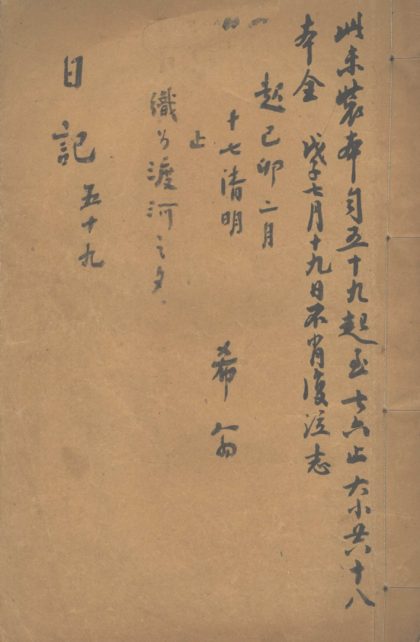 此未裝本自五十九起至七六止大小共十八
本全 戊子七月十九日不肖復泣志
起己卯二月
十七清明
止
織女渡河之夕
希翁
日記 五十九